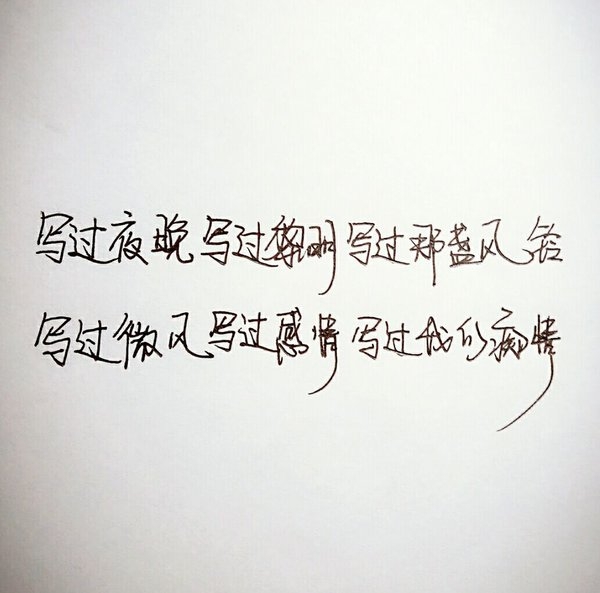 写过夜晚写过黎明写过那盏风铃
写过微风写过感情写过我的痴情